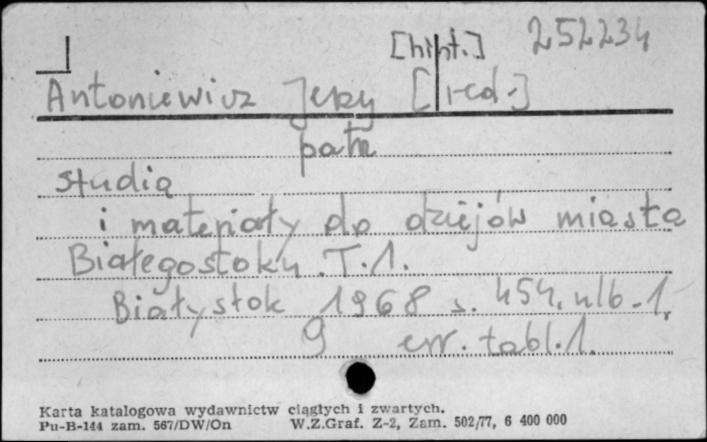 [hist.] 252234
Antoniewicz Jerzy [red.]
patrz
Studia
i materiały do dziejów miasta
Białegostoku. T. 1.
Białystok 1968 s. 454, nlb. 1,
9 err. tabl. 1.
Karta katalogowa wydawnictw ciągłych i zwartych.
Pu-B-144 zam. 567/DW/On W.Z.Graf. Z-2, Zam. 502/77, 6 400 000